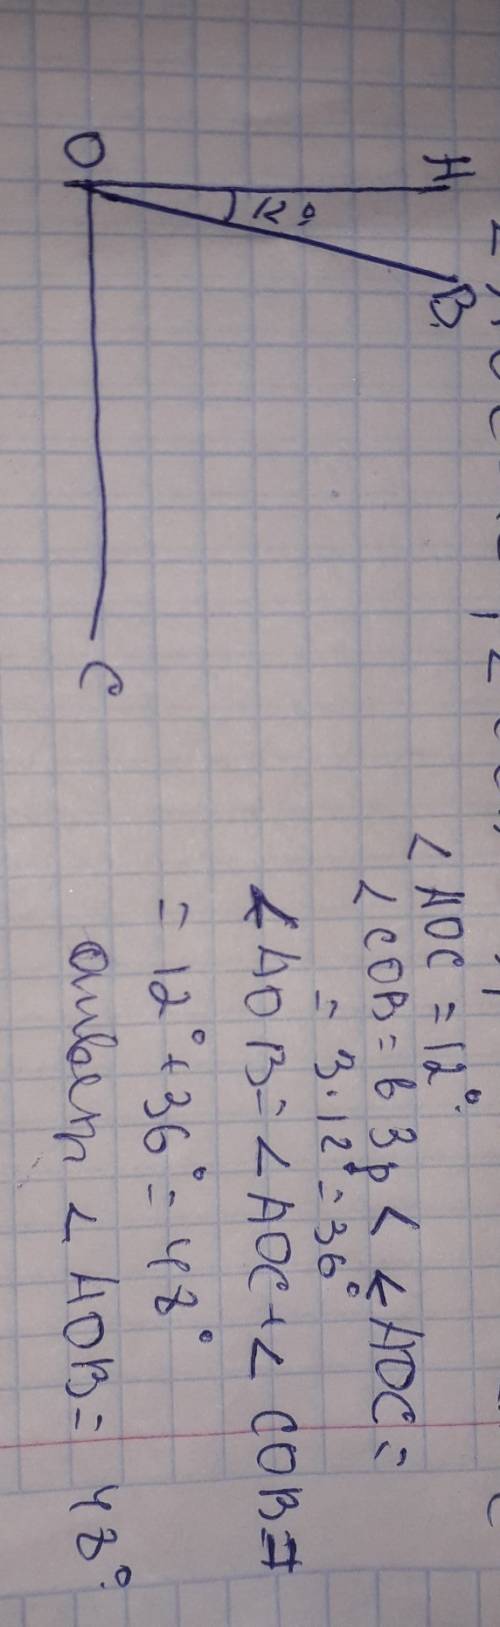 O
A
B
12°
C
∠AOC = 12°.
∠COB = в 3р < ∠AOC =
= 3·12° = 36°
∠AOB = ∠AOC + ∠COB =
= 12° + 36° = 48°
ответ ∠AOB = 48°